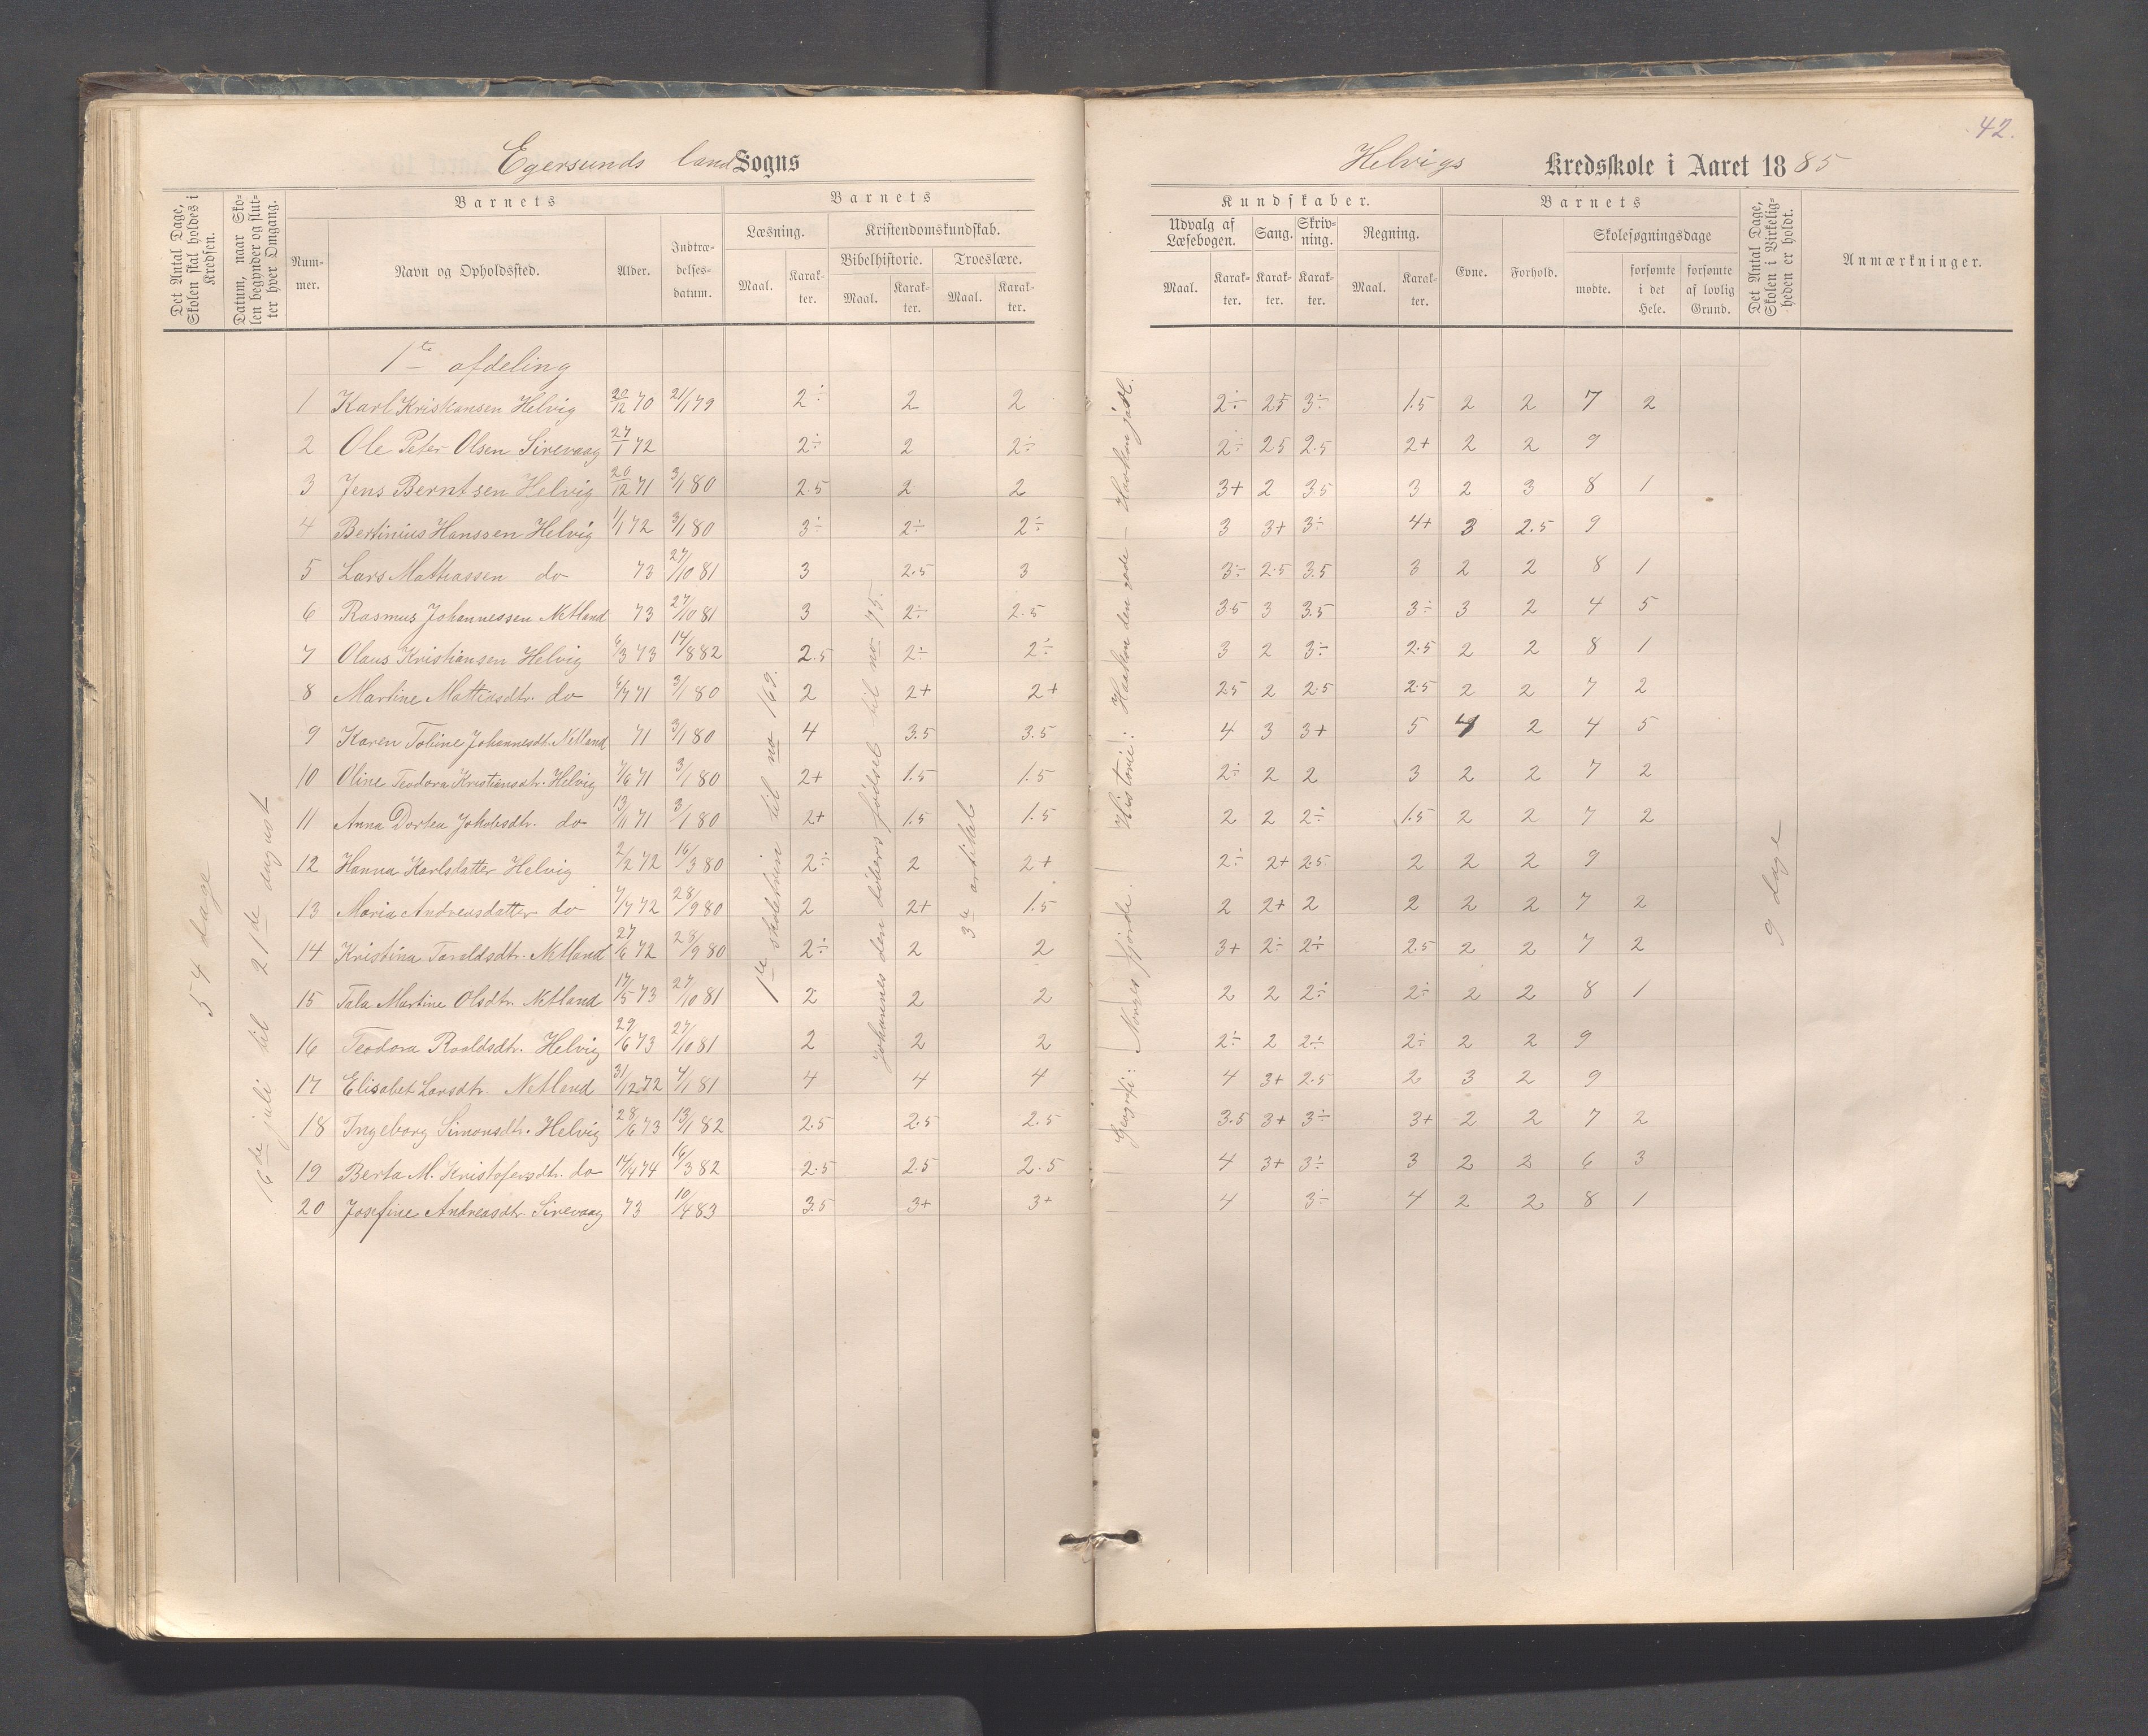 42.
Egersunds land Sogns
Helvigs Kredsskole i Aaret 1885
Det Antal Dage, Skolen skal holdes i Kredsen.
Datum, naar Skolen begynder og slutter hver Omgang.
Barnets
Nummer.
Navn og Opholdssted.
Alder.
Indtrædelsesdatum.
Barnets
Læsning.
Maal.
Karakter.
Kristendomskundskab.
Bibelhistorie.
Maal.
Karakter.
Troeslære.
Maal.
Karakter.
Kundskaber.
Udvalg af Læsebogen.
Maal.
Karakter.
Sang.
Karakter.
Skrivning.
Karakter.
Regning.
Maal.
Karakter.
Barnets
Evne.
Forhold.
Skolesøgningsdage
mødte.
forsømte i det Hele.
forsømte af lovlig Grund.
Det Antal Dage, Skolen i Virkeligheden er holdt.
Anmærkninger.
54 dage
16de juli til 21de august
1ste skoletrin til no 162.
Johannes den døbers fødsel til no 75.
3de artikel
Geografi: Norges fjorde. Historie: Haakon den gode – Haakon jarl.
9 dage
1te afdeling
1 Karl Kristiansen Helvig 20/12 70 21/1 79 2÷ 2 2 2÷ 25 3÷ 1.5 2 2 7 2
2 Ole Peter Olsen Sirevaag 27/1 72 2÷ 2 2÷ 2÷ 25 2.5 2+ 2 2 9
3 Jens Berntsen Helvig 20/12 71 3/1 80 2.5 2 2 3+ 2 3.5 3 2 3 8 1
4 Bertinius Hanssen Helvig 1/1 72 3/1 80 3÷ 2÷ 2÷ 3 3+ 3÷ 4+ 3 2.5 9
5 Lars Mathiassen do 73 27/10 81 3 2.5 3 3÷ 2.5 3.5 3 2 2 8 1
6 Rasmus Johannessen Netland 73 27/10 81 3 2÷ 2.5 3.5 3 3.5 3÷ 3 2 4 5
7 Olaus Kristiansen Helvig 6/3 73 14/8 82 2.5 2÷ 2÷ 3 2 3÷ 2.5 2 2 8 1
8 Martine Mathiasdtr. do 6/7 71 3/1 80 2 2+ 2+ 2.5 2 2.5 2.5 2 2 7 2
9 Karen Toline Johannesdt. Netland 71 3/1 80 4 3.5 3.5 4 3 3+ 5 4 2 4 5
10 Oline Teodora Kristiansdtr. Helvig 7/6 71 3/1 80 2+ 1.5 1.5 2÷ 2 2 3 2 2 7 2
11 Anna Dortea Jakobsdtr. do 13/11 71 3/1 80 2+ 1.5 1.5 2 2 2÷ 1.5 2 2 7 2
12 Hanna Karlsdatter Helvig 2/2 72 16/3 80 2÷ 2 2+ 2÷ 2+ 2.5 2 2 2 9
13 Maria Andreasdatter do 7/7 72 28/9 80 2 2+ 1.5 2 2+ 2 2 2 2 7 2
14 Kristina Taraldsdtr. Netland 27/6 72 28/9 80 2÷ 2 2 3+ 2÷ 2÷ 2.5 2 2 7 2
15 Tala Martine Olsdtr. Netland 17/5 73 27/10 81 2 2 2 2 2 2÷ 2÷ 2 2 8 1
16 Teodora Roaldsdtr. Helvig 29/6 73 27/10 81 2 2 2 2÷ 2 2÷ 2÷ 2 2 9
17 Elisabet Larsdtr. Netland 31/12 72 4/1 81 4 4 4 4 3+ 2.5 2 3 2 9
18 Ingeborg Simonsdtr. Helvig 28/6 73 13/1 82 2.5 2.5 2.5 3.5 3+ 3÷ 3+ 2 2 7 2
19 Berta M. Kristofersdtr. do 17/4 74 16/3 82 2.5 2.5 2.5 4 3+ 3÷ 3 2 2 6 3
20 Josefine Andreasdtr. Sirevaag 73 10/4 83 3.5 3+ 3+ 4 3÷ 4 2 2 8 1